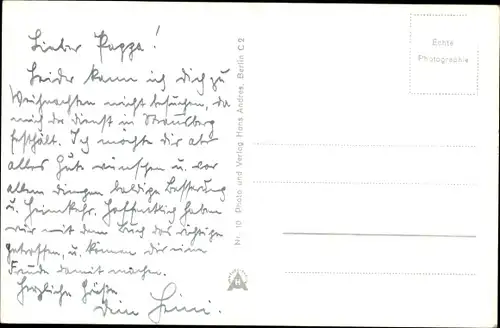 Lieber Pappa!
Leider kann ich Dich zu
Weihnachten nicht besuchen, da
mich der dienst in Strausberg
festhält. Ich möchte dir aber
alles Gute wünschen u. vor
allem dingen baldige Besserung
u. Heimkehr. Hoffentlich haben
wir mit dem Buch das richtige
getroffen, u. können dir eine
Freude damit machen.
Herzliche Grüße
Dein Heini.
Nr. 10 Photo und Verlag Hans Andres, Berlin C 2
Echte
Photographie